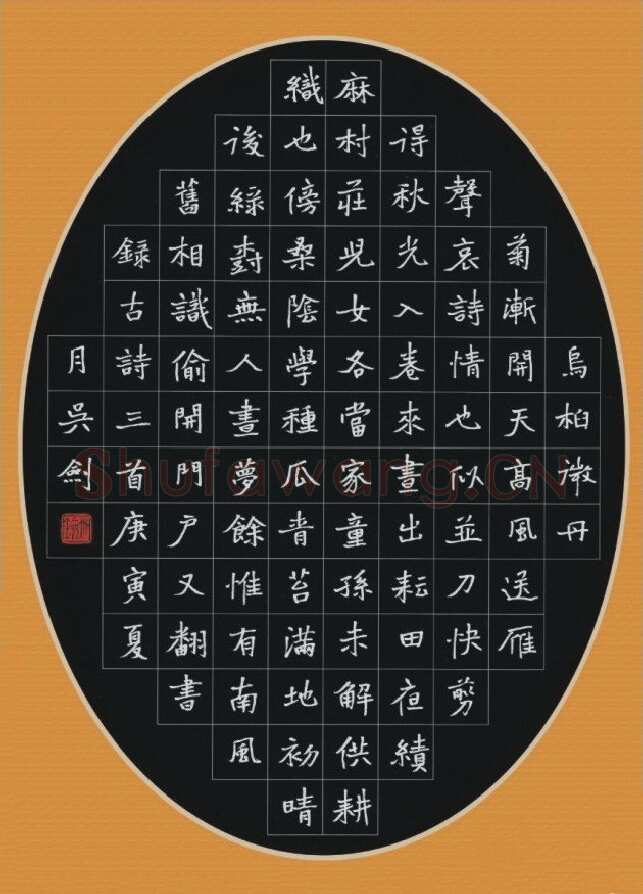 烏桕微丹
菊漸開天高風送雁
聲哀詩情也似並刀快剪
得秋光入卷來晝出耘田夜績
麻村莊兒女各當家童孫未解供耕
織也傍桑陰學種瓜青苔滿地初晴
後綠樹無人晝夢餘惟有南風
舊相識偷開門戶又翻書
錄古詩三首庚寅夏
月吳劍
Shufawang.CN